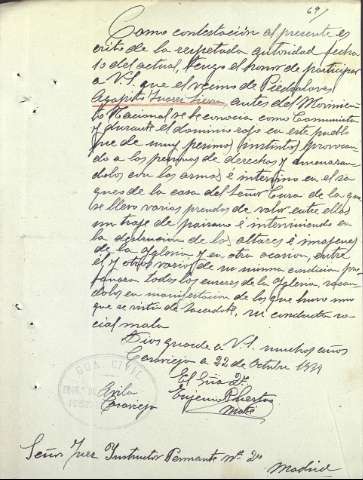 69
Como contestación al presente es
crito de la respetada autoridad fecha
10 del actual, tengo el honor de participar
a V.S. que el vecino de Piedralaves
Agapito antes del Movimien
to Nacional se le conocia como Comunista
y durante el dominio rojo en este pueblo
fue de muy pesimos instintos
do a las personas de derechas y amenazan
dolos con las armas é intervino en el sa
queo de la casa del Señor Cura de la que
se llevo varias prendas de valor entre ellas
un traje de paisano é interviniendo en
la destrucion de los altares é imagenes
de la Iglesia y en otra ocasion, entre
él y otros varios de su misma condicion pro
fanaron todos los enseres de la Iglesia, sacan
dolos en manifestacion de los que hubo uno
que se vistio de Sacerdote, su conducta so
cial mala
Dios guarde a V.S. muchos años
a 22 de Octubre 1939
El Guia 2º
Eugenio
GUARDIA CIVIL
Avila
Señor Juez Instructor Permanente nº 20
Madrid